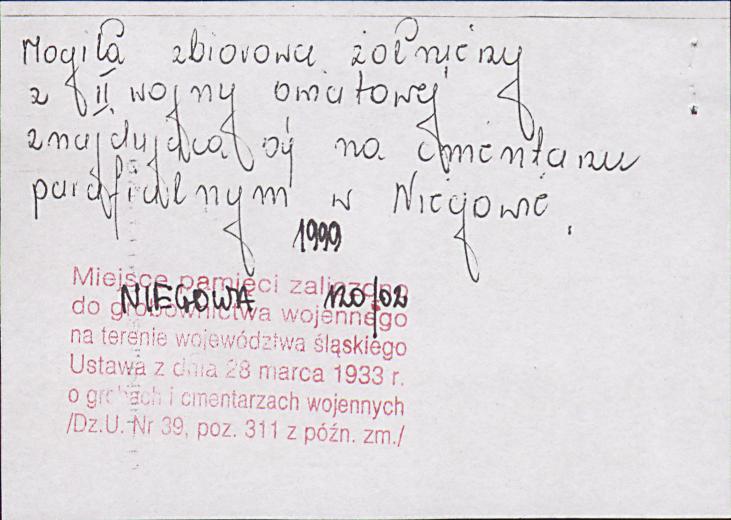 Mogiła zbiorowa żołnierzy
z II wojny światowej
znajdująca się na cmentarzu
parafialnym w Niegowie.
1999
Miejsce pamięci zaliczono
NIEGOWA 120/02
do grobownictwa wojennego
na terenie województwa śląskiego
Ustawa z dnia 28 marca 1933 r.
o grobach i cmentarzach wojennych
/Dz.U. Nr 39, poz. 311 z późn. zm./